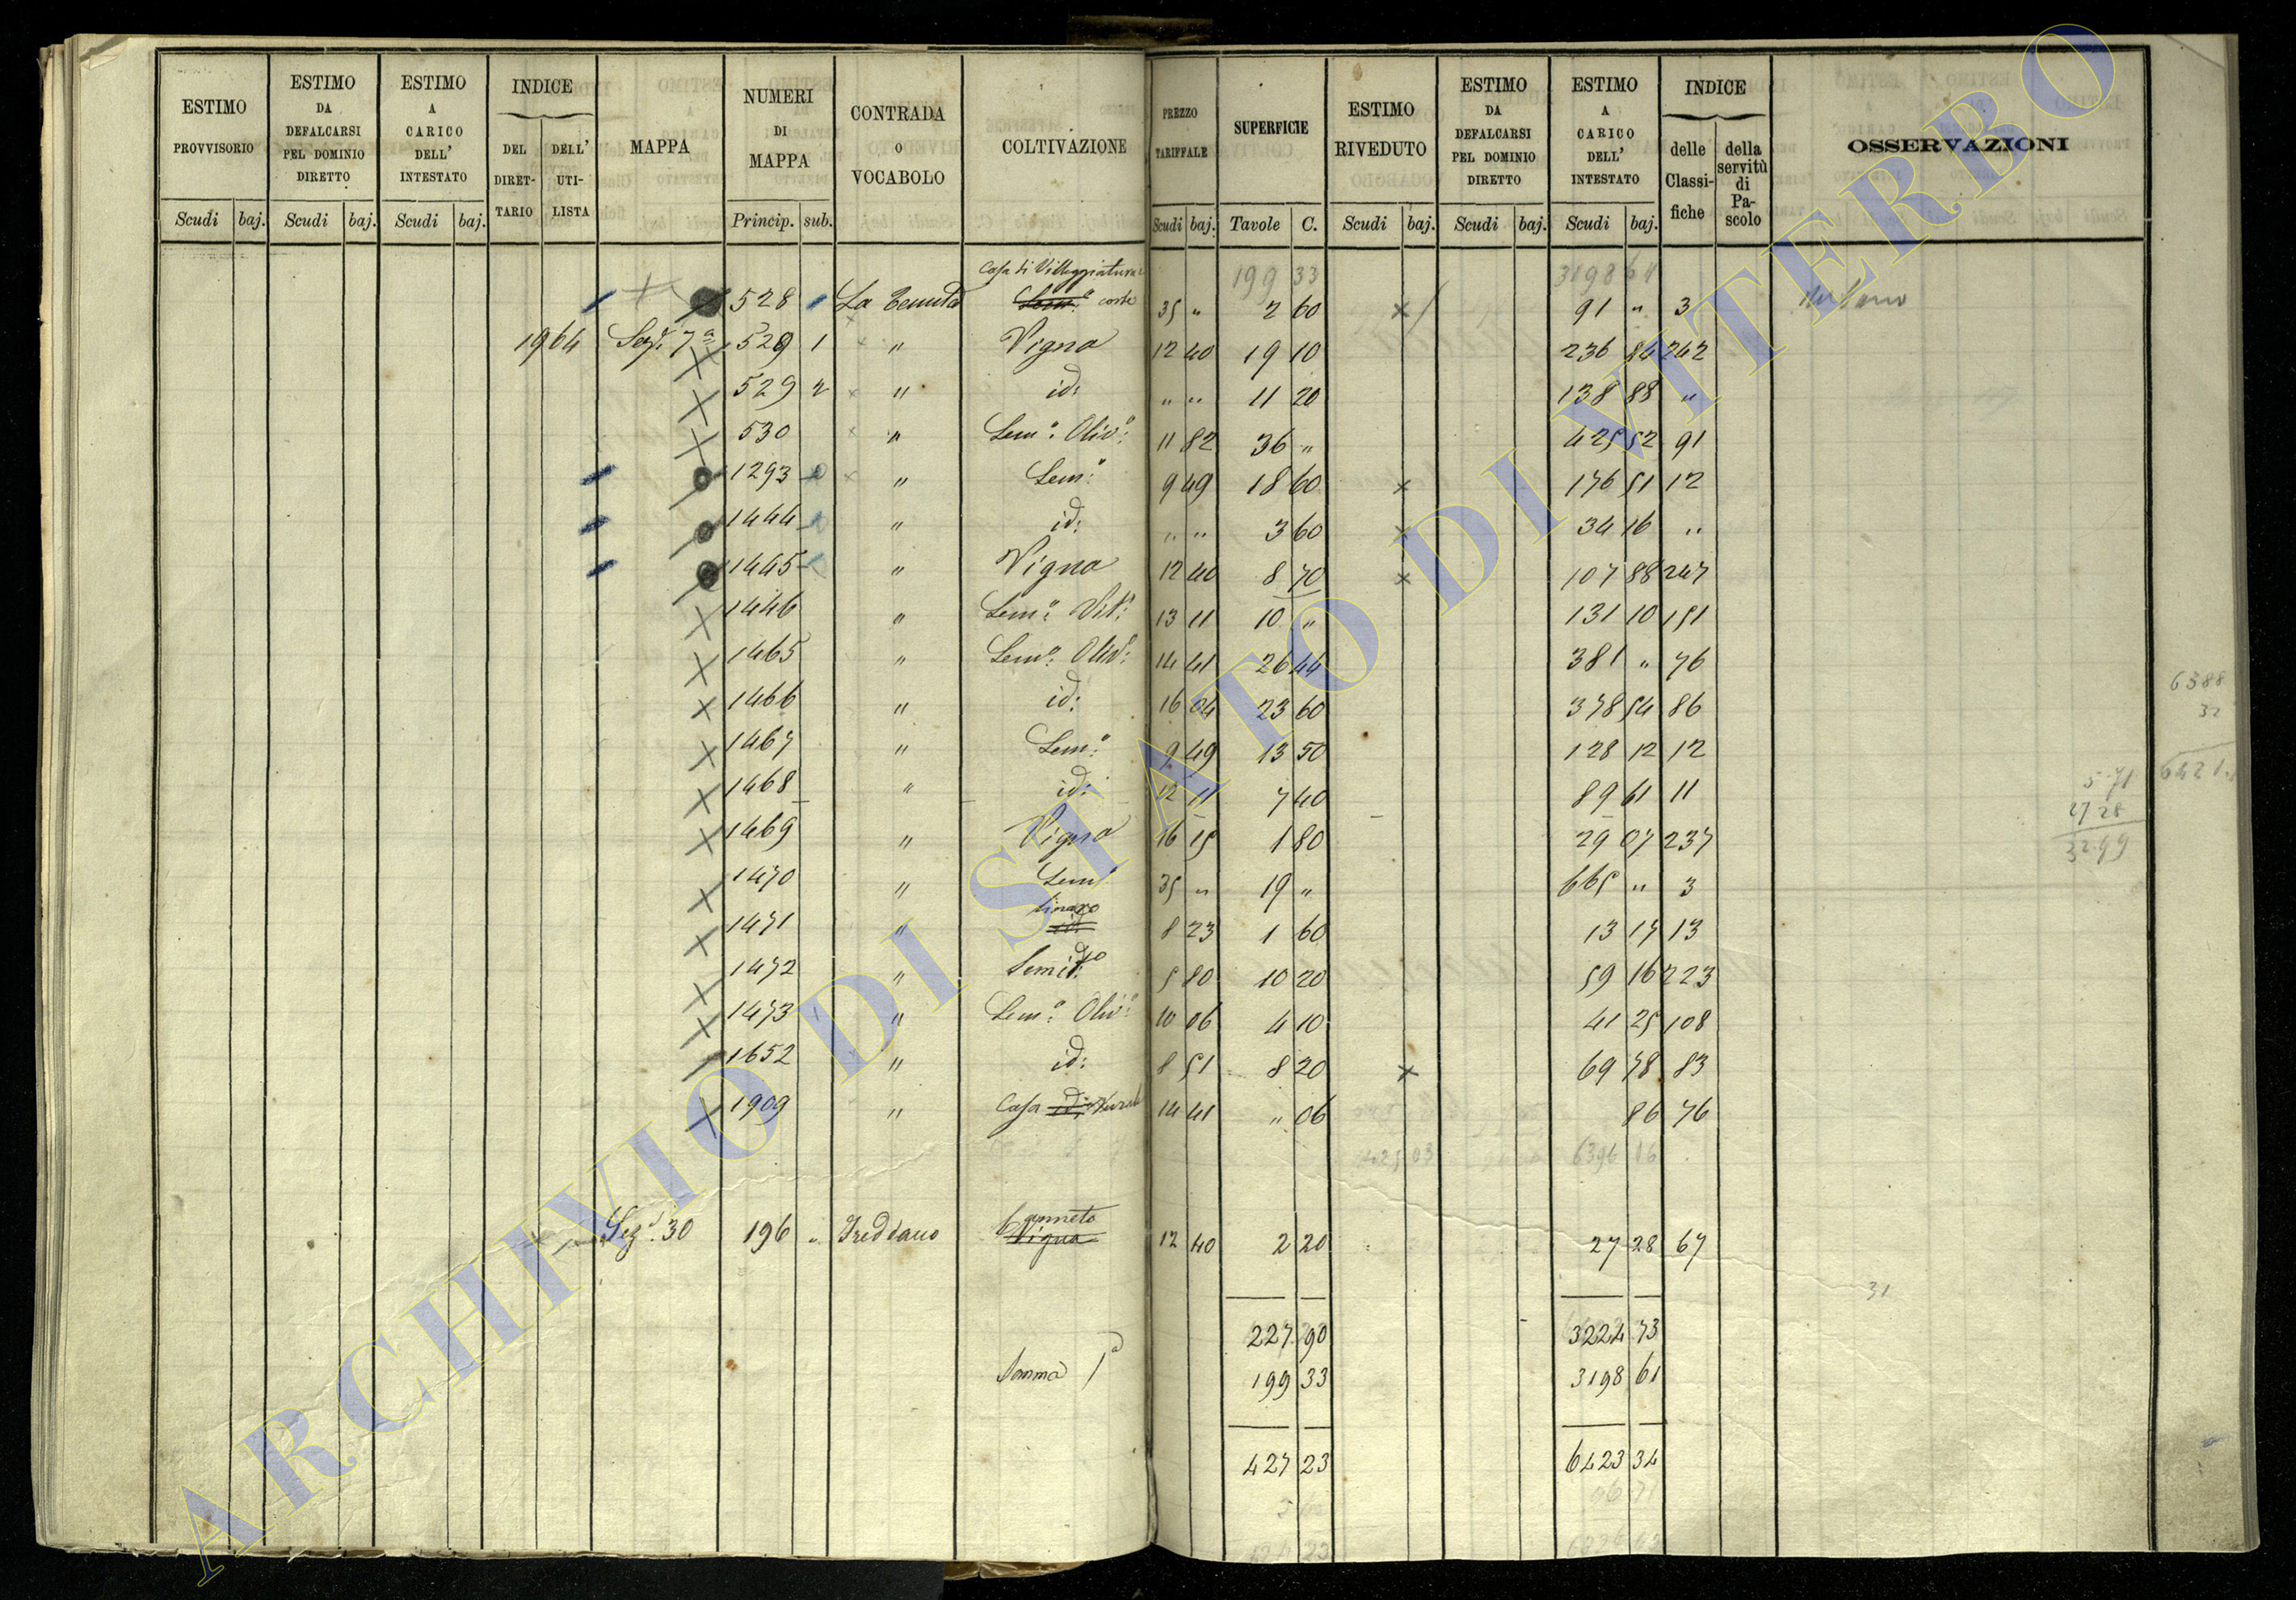 ESTIMO PROVVISORIO | ESTIMO DA DEFALCARSI PEL DOMINIO DIRETTO | ESTIMO A CARICO DELL' INTESTATO | INDICE DEL DIRET-TARIO | DELL' UTI-LISTA | MAPPA | NUMERI DI MAPPA | CONTRADA O VOCABOLO | COLTIVAZIONE | PREZZO TARIFFALE | SUPERFICIE | ESTIMO RIVEDUTO | ESTIMO DA DEFALCARSI PEL DOMINIO DIRETTO | ESTIMO A CARICO DELL' INTESTATO | INDICE delle Classi-fiche | della servitù di Pa-scolo | OSSERVAZIONI
Scudi baj. | Scudi baj. | Scudi baj. | Princip. sub. | Scudi baj. | Tavole C. | Scudi baj. | Scudi baj. | Scudi baj.
Casa di Villeggiatura 199 33 3198 61
528 La Tenuta Sem:o corte 35 " 2 60 x 91 " 3
1964 Sez: 7a 529 1 " Vigna 12 40 19 10 236 84 242
529 2 " id: " " 11 20 138 88 "
530 " Sem:o Oliv:o 11 82 36 " 425 52 91
1293 " Sem:o 9 49 18 60 x 176 51 12
1444 " id: " " 3 60 x 34 16 "
1445 " Vigna 12 40 8 70 x 107 88 247
1446 " Sem:o Vit:o 13 11 10 " 131 10 151
1465 " Sem:o Oliv:o 14 41 26 44 381 " 76
1466 " id: 16 04 23 60 378 54 86
1467 " Sem:o 9 49 13 50 128 12 12
1468 " id: 12 11 7 40 89 61 11
1469 " Vigna 16 15 1 80 29 07 237
1470 " Sem:o 35 " 19 " 665 " 3
1471 " 8 23 1 60 13 17 13
1472 " 5 80 10 20 59 16 223
1473 " Sem:o Oliv:o 10 06 4 10 41 25 108
1652 " id: 8 51 8 20 x 69 78 83
1909 " Casa id: rurale 14 41 " 06 86 76
6396 16
Sez: 30 196 " Canneto Vigna 12 40 2 20 27 28 67
31
227 90 3224 73
Somma 1a 199 33 3198 61
427 23 6423 34
6388
32
5 71
27 28
32 99
ARCHIVIO DI STATO DI VITERBO